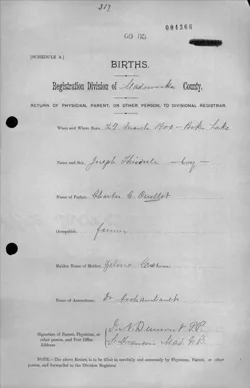 317
004366
[SCHEDULE A.]
BIRTHS.
Registration Division of Madawaska County.
RETURN OF PHYSICIAN, PARENT, OR OTHER PERSON, TO DIVISIONAL REGISTRAR.
When and Where Born, 27 March 1900 - Baker Lake
Name and Sex, Joseph - boy -
Name of Father, Charles C. Ouellet
Occupation, farmer
Maiden Name of Mother,
Name of Accoucheur, Dr Archambault
Signature of Parent, Physician, or other person, and Post Office Address
NOTE.—The above Return is to be filled in carefully and accurately by Physician, Parent, or other person, and forwarded to the Division Registrar